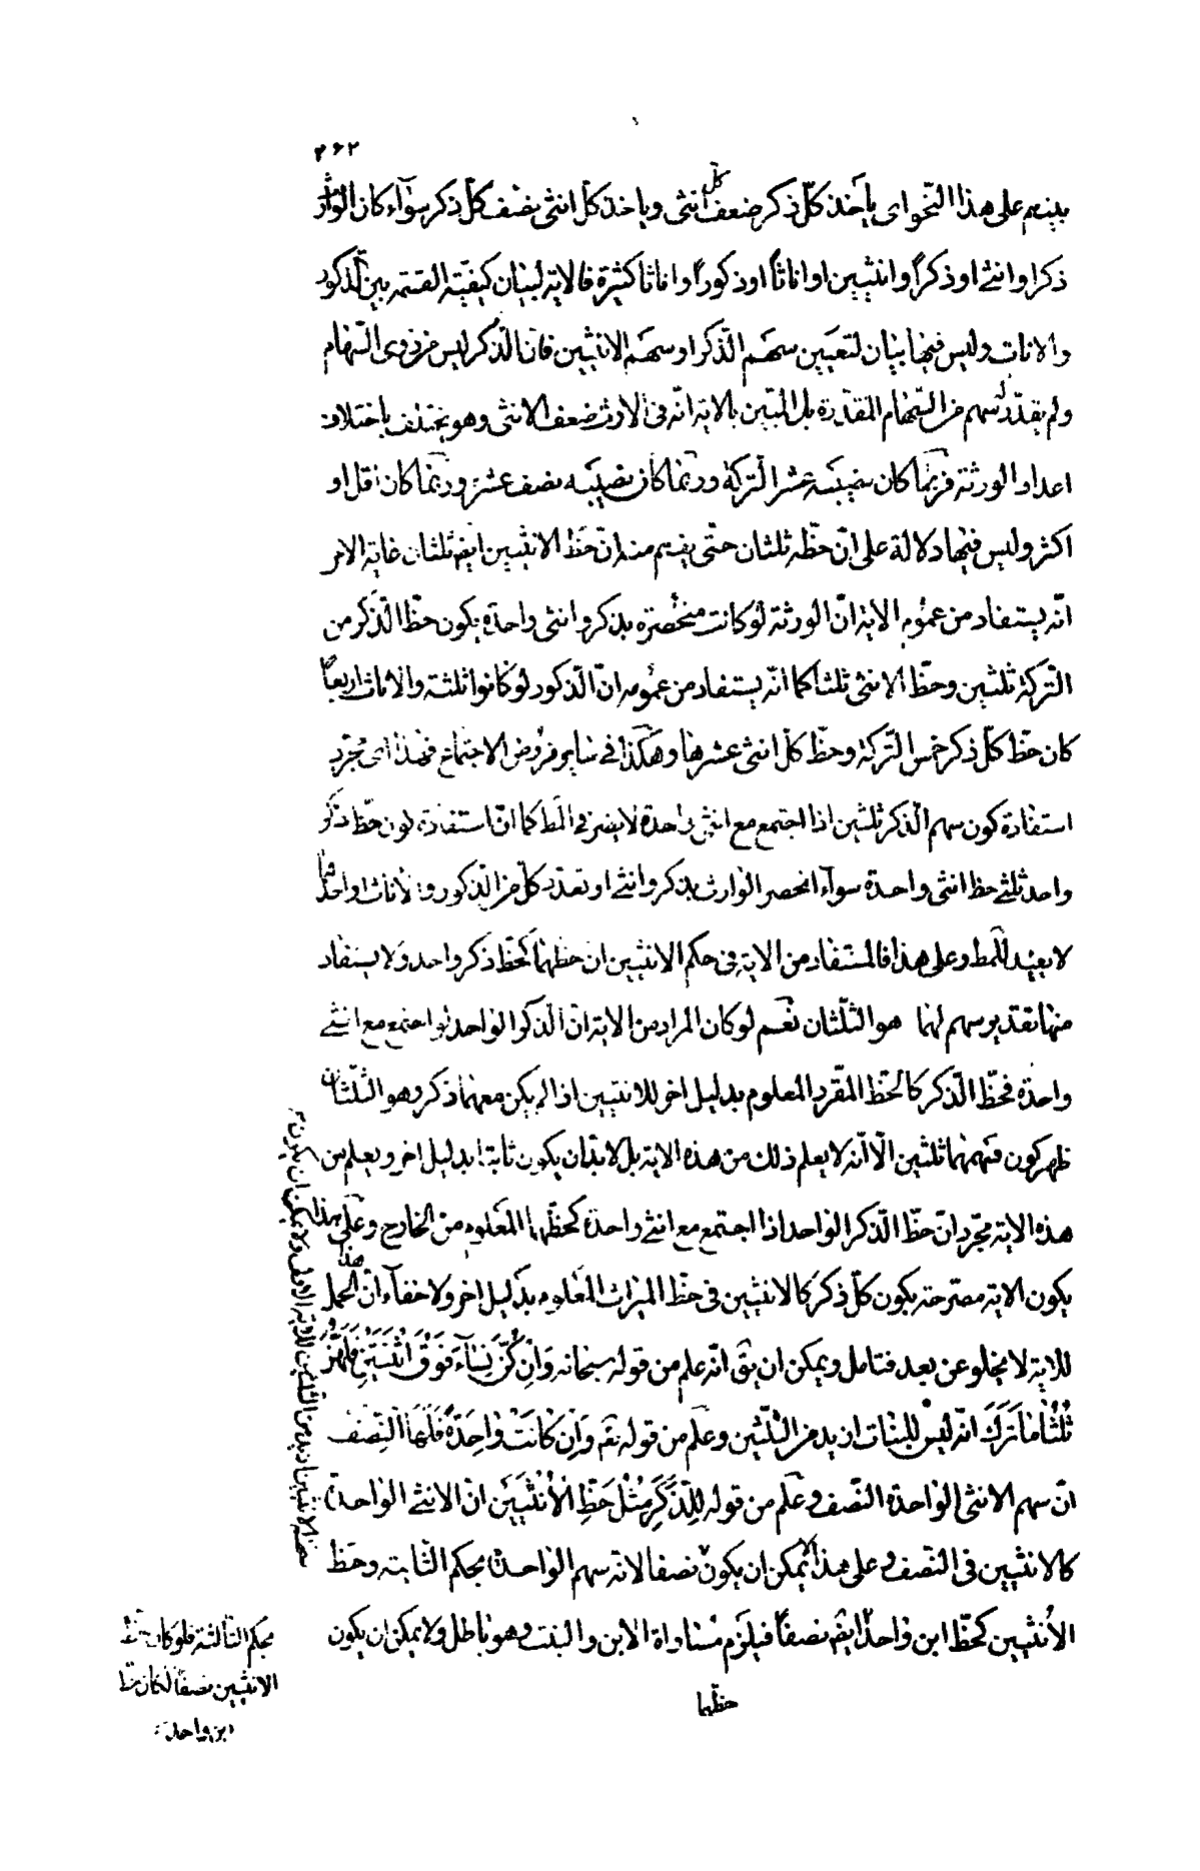 ٢٦٢
بينهم على هذا النّحو اى يأخذ كلّ ذكر ضعف كلّ انثى وياخذ كلّ انثى نصف كلّ ذكر سوآء كان الوارث
ذكرا وانثى او ذكرًا وانثيين او اناثًا او ذكورًا واناثا كثيرة فالاية لبيان كيفيّة القسمة بين الذّكور
والاناث وليس فيها بيان لتعيين سهم الذّكر او سهم الانثيين فانّ الذّكر ليس من ذوى السّهام
ولم يقدّر له سهم من السّهام المقدّرة بل المبيّن بالاية انّه فى الارث ضعف الانثى وهو يختلف باختلاف
اعداد الورثة فربّما كان نصيبه عشر التّركة وربّما كان نصيبه نصف عشر وربّما كان اقل او
اكثر وليس فيها دلالة على انّ حظّه ثلثان حتّى يفهم منه انّ حظّ الانثيين ايضا ثلثان غاية الامر
انّه يستفاد من عموم الاية انّ الورثة لو كانت منحصرة بذكر وانثى واحدة يكون حظّ الذّكر من
التّركة ثلثين وحظّ الانثى ثلثا كما انّه يستفاد من عمومه انّ الذّكور لو كانوا ثلثة والاناث اربعًا
كان حظّ كلّ ذكر خمس التّركة وحظّ كلّ انثى عشرها وهكذا فى ساير فروض الاجتماع فهذا اى مجرّد
استفادة كون سهم الذّكر ثلثين اذا اجتمع مع انثى واحدة لا يضر فى المط كما انّ استفادة كون حظّ ذكر
واحد ثلثى حظ انثى واحدة سوآء انحصر الوارث بذكر وانثى او تعدّد كلّ من الذّكور والاناث او احدهما
لا يفيد للمط وعلى هذا فالمستفاد من الاية فى حكم الانثيين ان حظّهما كحظّ ذكر واحد ولا يستفاد
منها تقدير سهم لهما هو الثلثان نعم لو كان المراد من الاية انّ الذّكر الواحد لو اجتمع مع انثى
واحدة فحظّ الذّكر كالحظّ المقرّر المعلوم بدليل اخر للانثيين اذا لم يكن معهما ذكر وهو الثّلثان
ظهر كون سهمهما ثلثين الّا انّه لا يعلم ذلك من هذه الاية بل لابدّ ان يكون ثابتا بدليل اخر ويعلم من
هذه الاية مجرّد انّ حظّ الذّكر الواحد اذا اجتمع مع انثى واحدة كحظّهما المعلوم من الخارج وعلى هذا
يكون الاية مصرّحة بكون كلّ ذكر كالانثيين فى حظّ الميراث المعلوم بدليل اخر ولا خفآء انّ هذا الحمل
للاية لا يخلو عن بعد فتامل ويمكن ان يق انّه علم من قوله سبحانه وَاِنْ كُنَّ نِسَآءً فَوْقَ اثْنَتَيْنِ فَلَهُنَّ
ثُلُثَا مَا تَرَكَ انّه ليس للبنات ازيد من الثّلثين وعلم من قوله تع وَاِنْ كَانَتْ وَاحِدَةً فَلَهَا النِّصْفُ
انّ سهم الانثى الواحدة النّصف وعلم من قوله لِلذَّكَرِ مِثْلُ حَظِّ الْاُنْثَيَيْنِ انّ الانثى الواحدة
كالانثيين فى النّصف وعلى هذا لا يمكن ان يكون نصفا لانه سهم الواحدة بحكم الثّانية وحظّ
الاُنثيين كحظّ ابن واحد ايضا نصفًا فيلزم مساواة الابن والبنت وهو باطل ولا يمكن ان يكون
حظّهما
سهم الانثيين ازيد من الثلثين للاية الاولى ولا يمكن ان يكون
بحكم الثّالثة فلو كان حظّ
الانثيين نصفًا لكان حظّ
ابن واحد